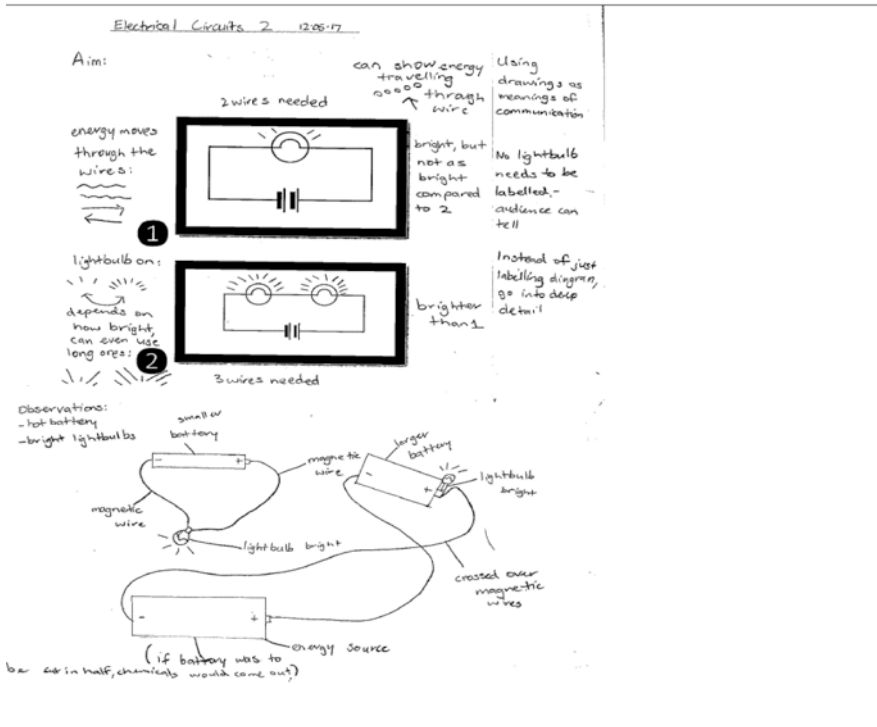 Electrical Circuits 2 12·05·17
Aim:
can show energy
travelling
through
wire
Using
drawings as
meanings of
communication
2 wires needed
energy moves
through the
wires:
bright, but
not as
bright
compared
to 2
No lightbulb
needs to be
labelled,-
audience can
tell
1
lightbulb on:
depends on
how bright,
can even use
long ones:
brighter
than 1
Instead of just
labelling diagram,
go into deep
detail
2
3 wires needed
Observations:
- hot battery
- bright lightbulbs
smaller
battery
- +
magnetic
wire
magnetic
wire
lightbulb bright
larger
battery
- +
lightbulb
bright
crossed over
magnetic
wires
- +
energy source
(if battery was to
be cut in half, chemicals would come out)